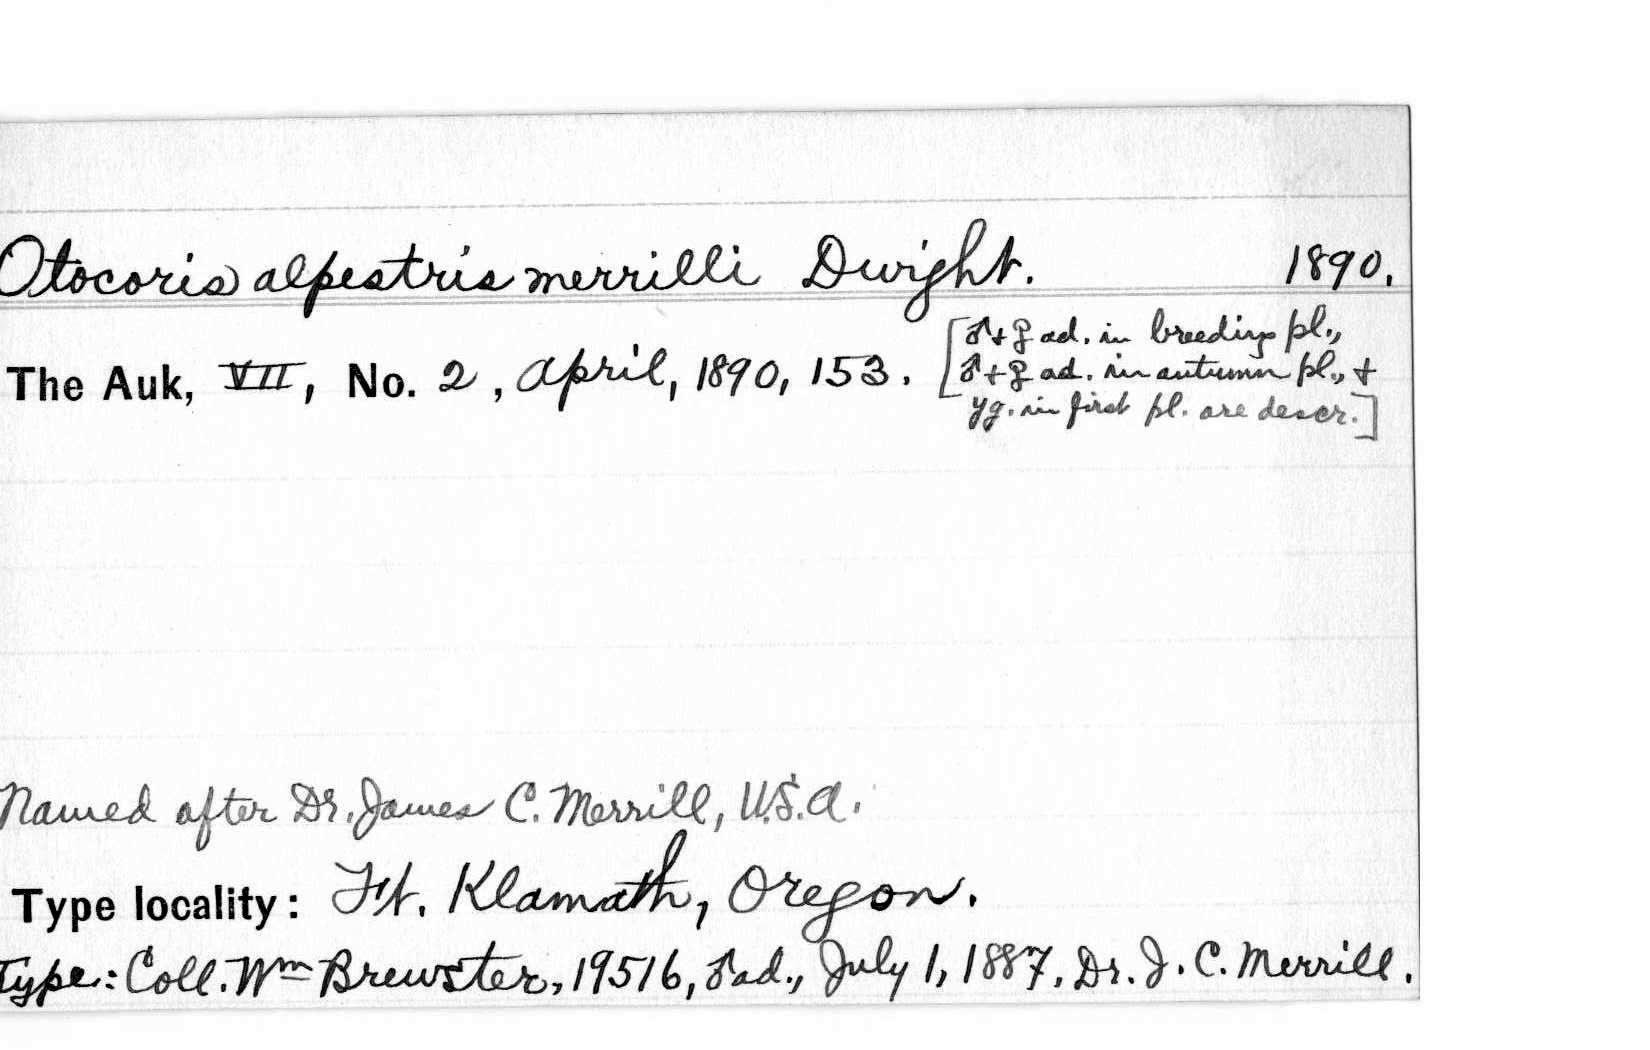 Otocoris alpestris merrilli Dwight. 1890.
The Auk, VII, No. 2, April, 1890, 153. [♂+♀ ad. in breeding pl.,
♂+♀ ad. in autumn pl., +
yg. in first pl. are descr.]
Named after Dr. James C. Merrill, U.S.A.
Type locality: Ft. Klamath, Oregon.
Type: Coll. Wm Brewster, 19516, ♂ ad., July 1, 1887, Dr. J. C. Merrill.